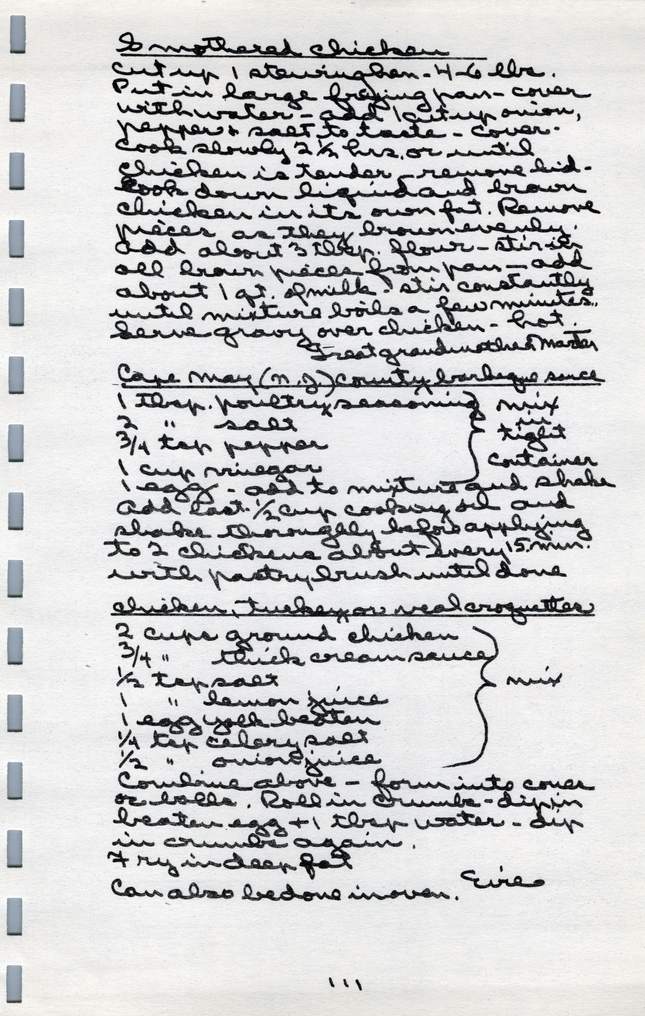 Smothered chicken
Cut up 1 stewing hen - 4-6 lbs.
Put in large frying pan - cover
with water - add 1 cut up onion,
pepper & salt to taste - cover.
Cook slowly 2½ hrs. or until
chicken is tender - remove lid -
Cook down liquid and brown
chicken in its own fat. Remove
pieces as they brown evenly.
Add about 3 tbsp. flour - stir in
all brown pieces from pan - add
about 1 qt. of milk stir constantly
until mixture boils a few minutes.
Serve gravy over chicken - hot.
Great grandmother
Cape May (N.J.) County barbeque sauce
1 tbsp. poultry seasoning } mix
2 " salt in
¾ tsp pepper tight
1 cup vinegar container
1 egg - add to mixture and shake
Add last ½ cup cooking oil and
shake thoroughly before applying
to 2 chickens about every 15 min.
with pastry brush until done
Chicken, turkey, or veal croquettes
2 cups ground chicken
¾ " thick cream sauce
½ tsp salt } mix
1 " lemon juice
1 egg yolk beaten
¼ tsp celery salt
½ " onion juice
Combine above - form into cones
or balls. Roll in crumbs - dip in
beaten egg + 1 tbsp water - dip
in crumbs again.
Fry in deep fat
Can also be done in oven.
111